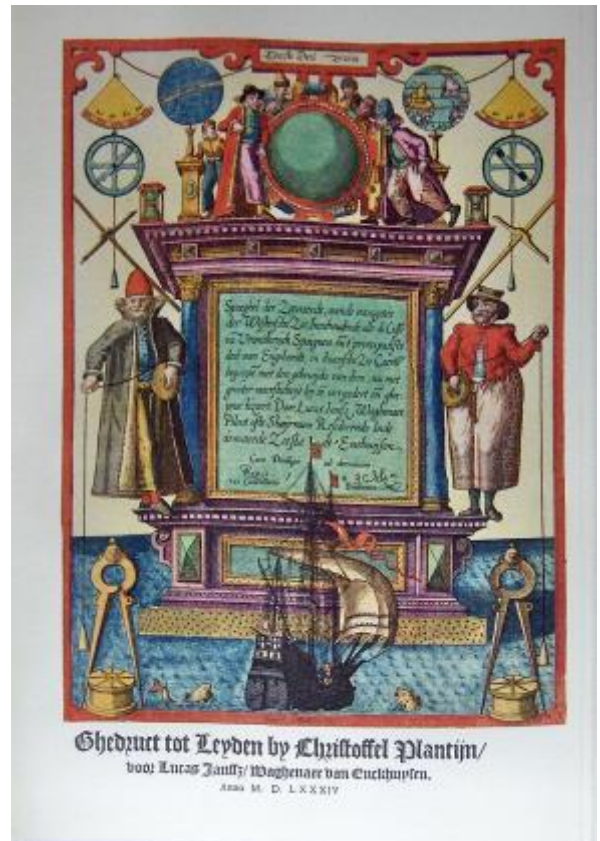 Eerste Deel vande
Spieghel der Zeevaerdt, vande navigatie
der Westersche Zee, Innehoudende alle de Custē
vā Vranckrijck Spaignen eñ t principaelste
deel van Engelandt, in diversche Zee Caertē
begrepē, met den gebruijcke van dien, nu met
grooter naersticheijt bij eē vergadert eñ ghe
Door Lucas Waghenaer
Piloot ofte Stuijrman Residerende Inde
vermaerde Zeestadt Enchuijsen.
Cum Privilegio ad
Ghedruct tot Leyden by Christoffel Plantijn/
voor Lucas Janssz/ Waghenaer van Enckhuysen.
Anno M. D. LXXXIV